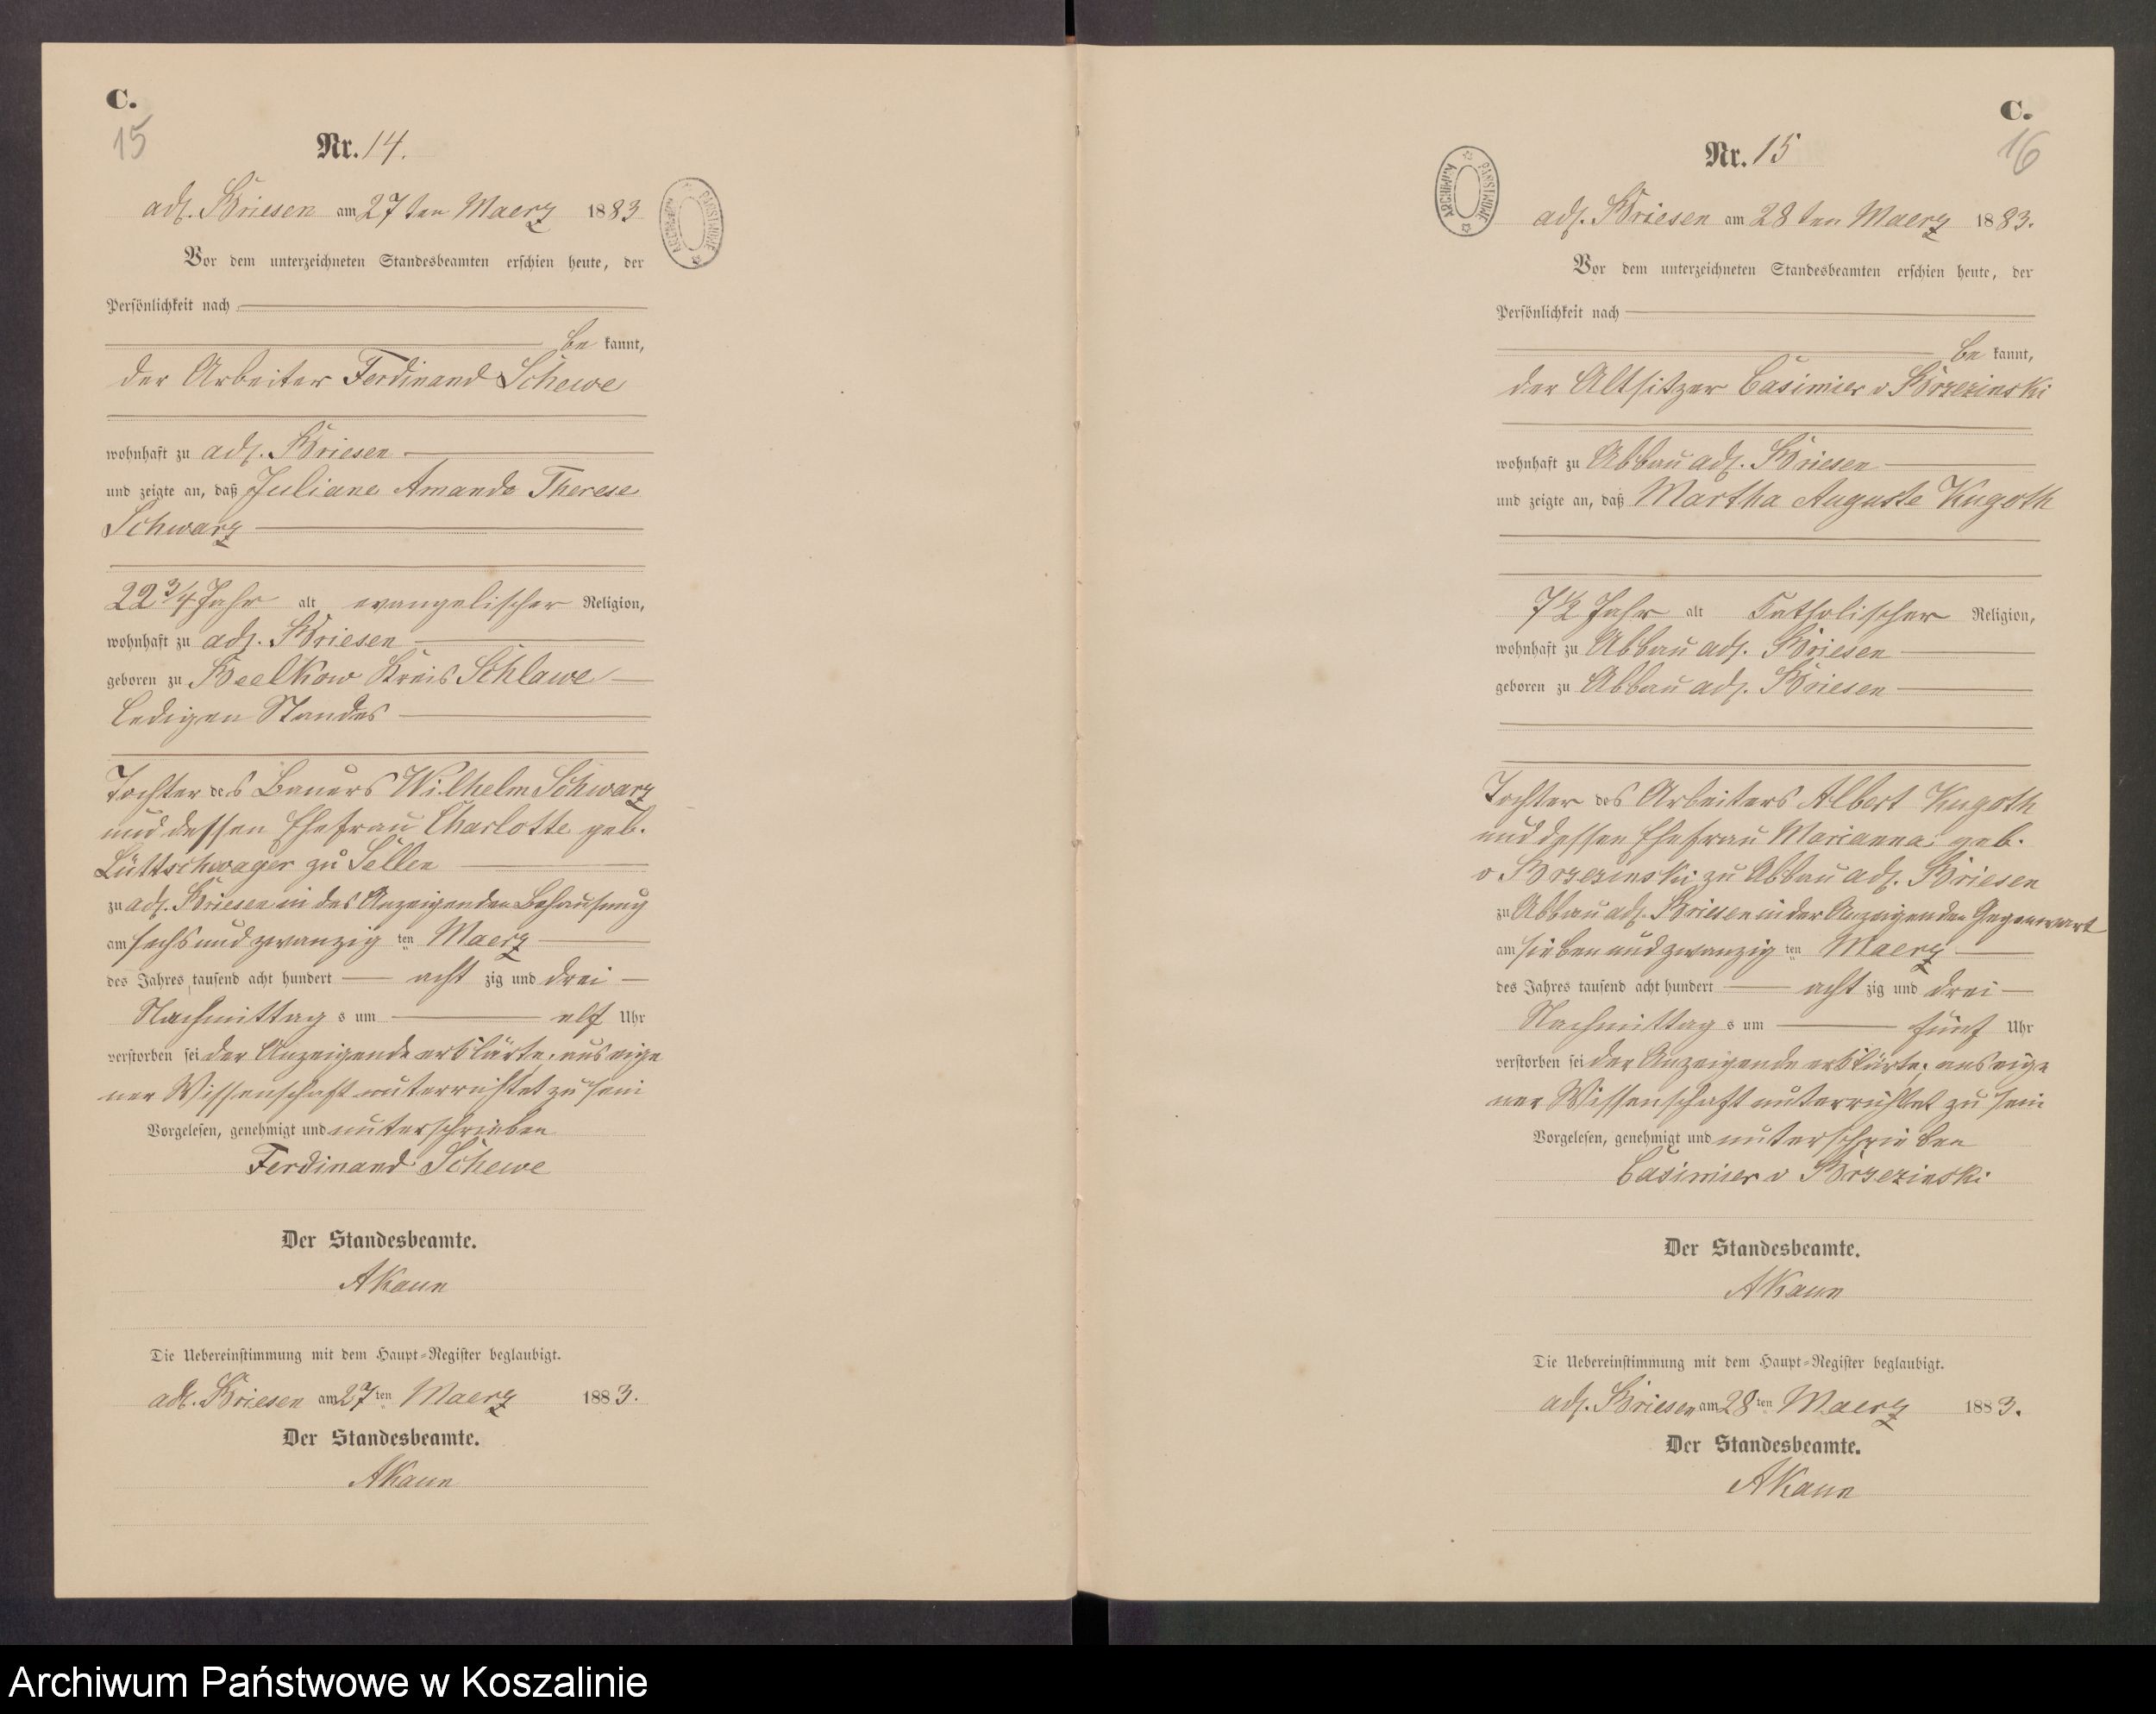 C.
15
Nr. 14.
adl. Briesen am 27ten Maerz 1883
ARCHIWUM PAŃSTWOWE
Vor dem unterzeichneten Standesbeamten erschien heute, der
Persönlichkeit nach
be kannt,
der Arbeiter Ferdinand Schewe
wohnhaft zu adl. Briesen
und zeigte an, daß Juliane Amanda Therese
Schwarz
22 3/4 Jahr alt evangelischer Religion,
wohnhaft zu adl. Briesen
geboren zu Beelkow Kreis Schlawe
ledigen Standes
Tochter des Bauers Wilhelm Schwarz
und dessen Ehefrau Charlotte geb.
Lüttschwager zu Sellen
zu adl. Briesen in des Anzeigenden Behausung
am sechs und zwanzig ten Maerz
des Jahres tausend acht hundert acht zig und drei
Nachmittag s um elf Uhr
verstorben sei der Anzeigende erklärte, aus eige
ner Wissenschaft unterrichtet zu sein
Vorgelesen, genehmigt und unterschrieben
Ferdinand Schewe
Der Standesbeamte.
AKaun
Die Uebereinstimmung mit dem Haupt-Register beglaubigt.
adl. Briesen am 27ten Maerz 1883.
Der Standesbeamte.
AKaun
C.
16
Nr. 15
ARCHIWUM PAŃSTWOWE
adl. Briesen am 28ten Maerz 1883.
Vor dem unterzeichneten Standesbeamten erschien heute, der
Persönlichkeit nach
be kannt,
der Altsitzer Casimier v Brzezinski
wohnhaft zu Abbau adl. Briesen
und zeigte an, daß Martha Auguste Kugoth
7 1/2 Jahr alt katholischer Religion,
wohnhaft zu Abbau adl. Briesen
geboren zu Abbau adl. Briesen
Tochter des Arbeiters Albert Kugoth
und dessen Ehefrau Marianna geb.
v Brzezinski zu Abbau adl. Briesen
zu Abbau adl. Briesen in der Anzeigenden Gegenwart
am sieben und zwanzig ten Maerz
des Jahres tausend acht hundert acht zig und drei
Nachmittag s um fünf Uhr
verstorben sei der Anzeigende erklärte, aus eige
ner Wissenschaft unterrichtet zu sein
Vorgelesen, genehmigt und unterschrieben
Casimier v Brzezinski
Der Standesbeamte.
AKaun
Die Uebereinstimmung mit dem Haupt-Register beglaubigt.
adl. Briesen am 28ten Maerz 1883.
Der Standesbeamte.
AKaun
Archiwum Państwowe w Koszalinie